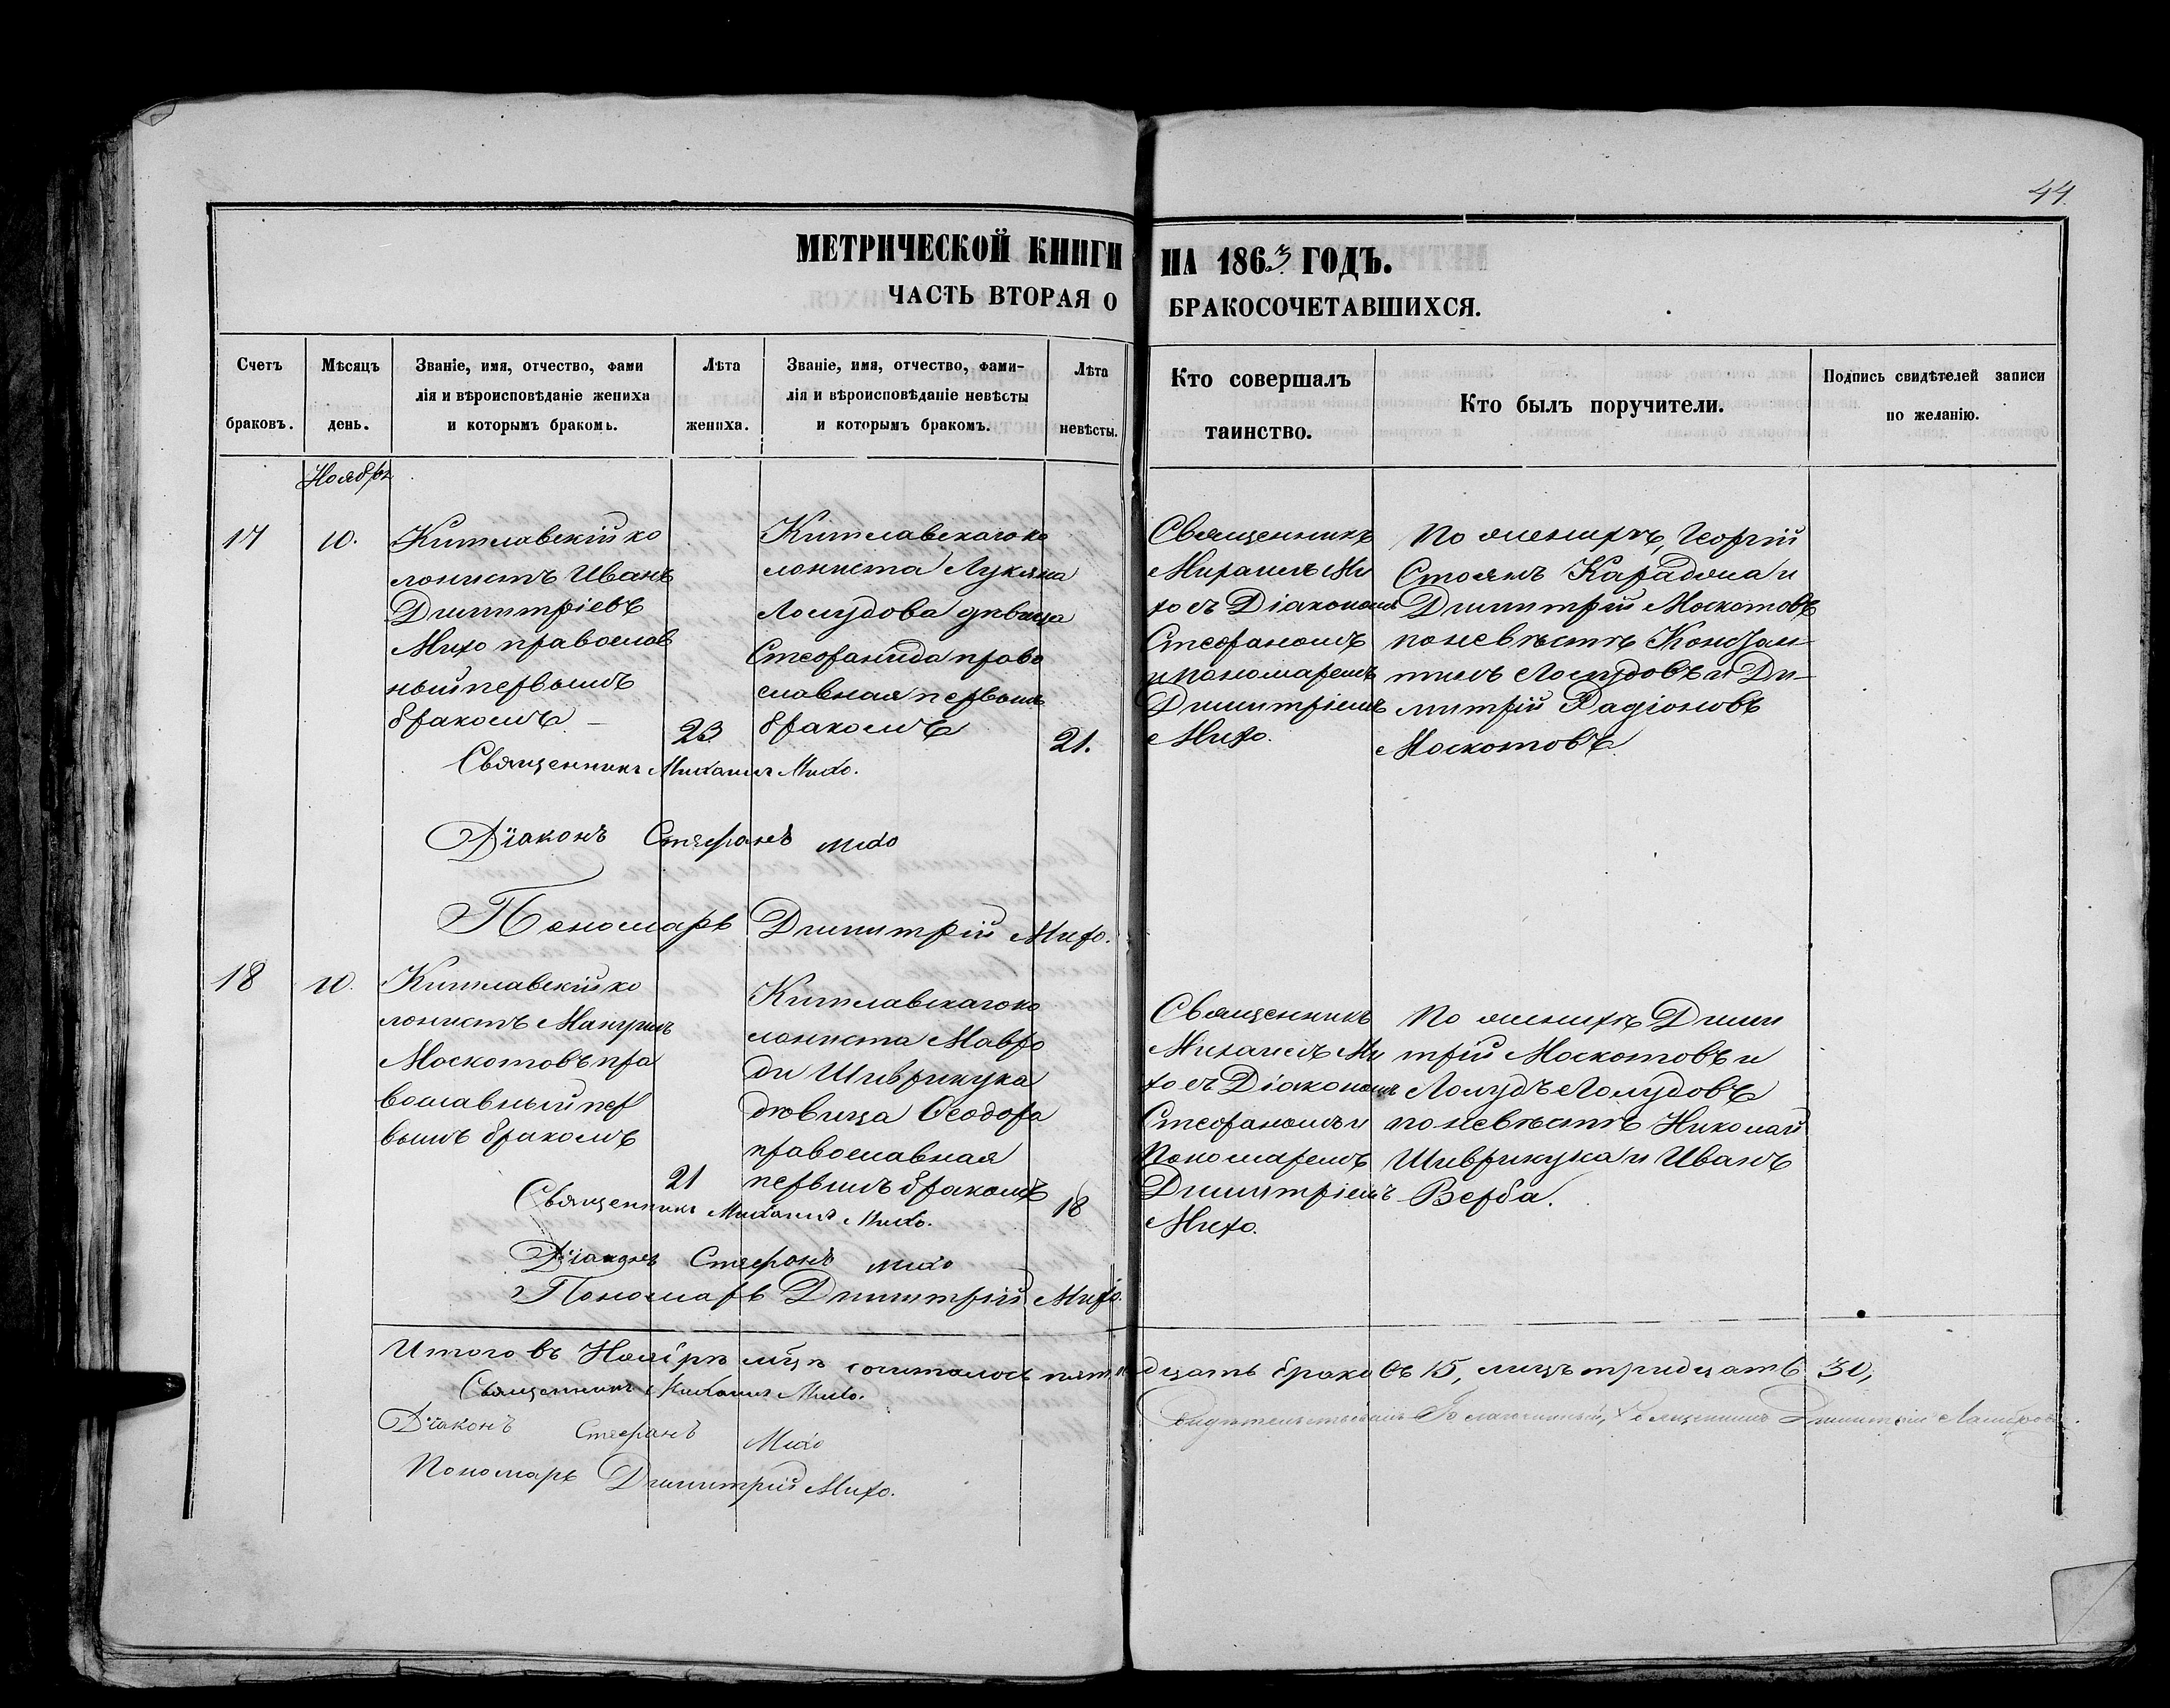 44.
МЕТРИЧЕСКОЙ КНИГИ НА 1863 ГОДЪ.
ЧАСТЬ ВТОРАЯ О БРАКОСОЧЕТАВШИХСЯ.
Счетъ браковъ.
Мѣсяцъ день.
Званіе, имя, отчество, фами
лія и вѣроисповѣданіе жениха
и которымъ бракомъ.
Лѣта жениха.
Званіе, имя, отчество, фами-
лія и вѣроисповѣданіе невѣсты
и которымъ бракомъ.
Лѣта невѣсты.
Кто совершалъ
таинство.
Кто былъ поручители.
Подпись свидѣтелей записи
по желанію.
Ноябрь
17
10.
Китлавскій ко
лонистъ Иванъ
Димитріевъ
Михо православ
ный первымъ
бракомъ
23
Китлавскаго ко
лониста Лукяна
Лолудова дѣвица
Стефанида право
славная первымъ
бракомъ
21.
Священникъ
Михаилъ Ми
хо съ Діакономъ
Стефаномъ
и пономаремъ
Димитріемъ
Михо.
По женихѣ, Георгій
Стоянъ Караджа и
Димитрій Москотовъ
по невѣстѣ Констан-
тинъ Лолудовъ и Ди-
митрій Радіоновъ
Москотовъ
Священникъ Михаилъ Михо.
Діаконъ Стефанъ Михо
Пономарь Димитрій Михо.
18
10.
Китлавскій ко
лонистъ Мануилъ
Москотовъ пра
вославный пер
вымъ бракомъ
21
Китлавскаго ко
лониста Мавро
ди Шиврикука
дѣвица Ѳеодора
православная
первымъ бракомъ
18
Священникъ
Михаилъ Ми
хо съ Діакономъ
Стефаномъ и
Пономаремъ
Димитріемъ
Михо.
По женихѣ Дими
трій Москотовъ и
Лолудъ Лолудовъ
по невѣстѣ Николай
Шиврикука и Иванъ
Верба.
Священникъ Михаилъ Михо.
Діаконъ Стефанъ Михо
Пономарь Димитрій Михо.
Итого въ Ноябрѣ мцѣ сочиталось пятнадцать браковъ 15, лицъ тридцать 30,
Священникъ Михаилъ Михо.
Діаконъ Стефанъ Михо
Пономарь Димитрій Михо.
Священникъ Димитрій